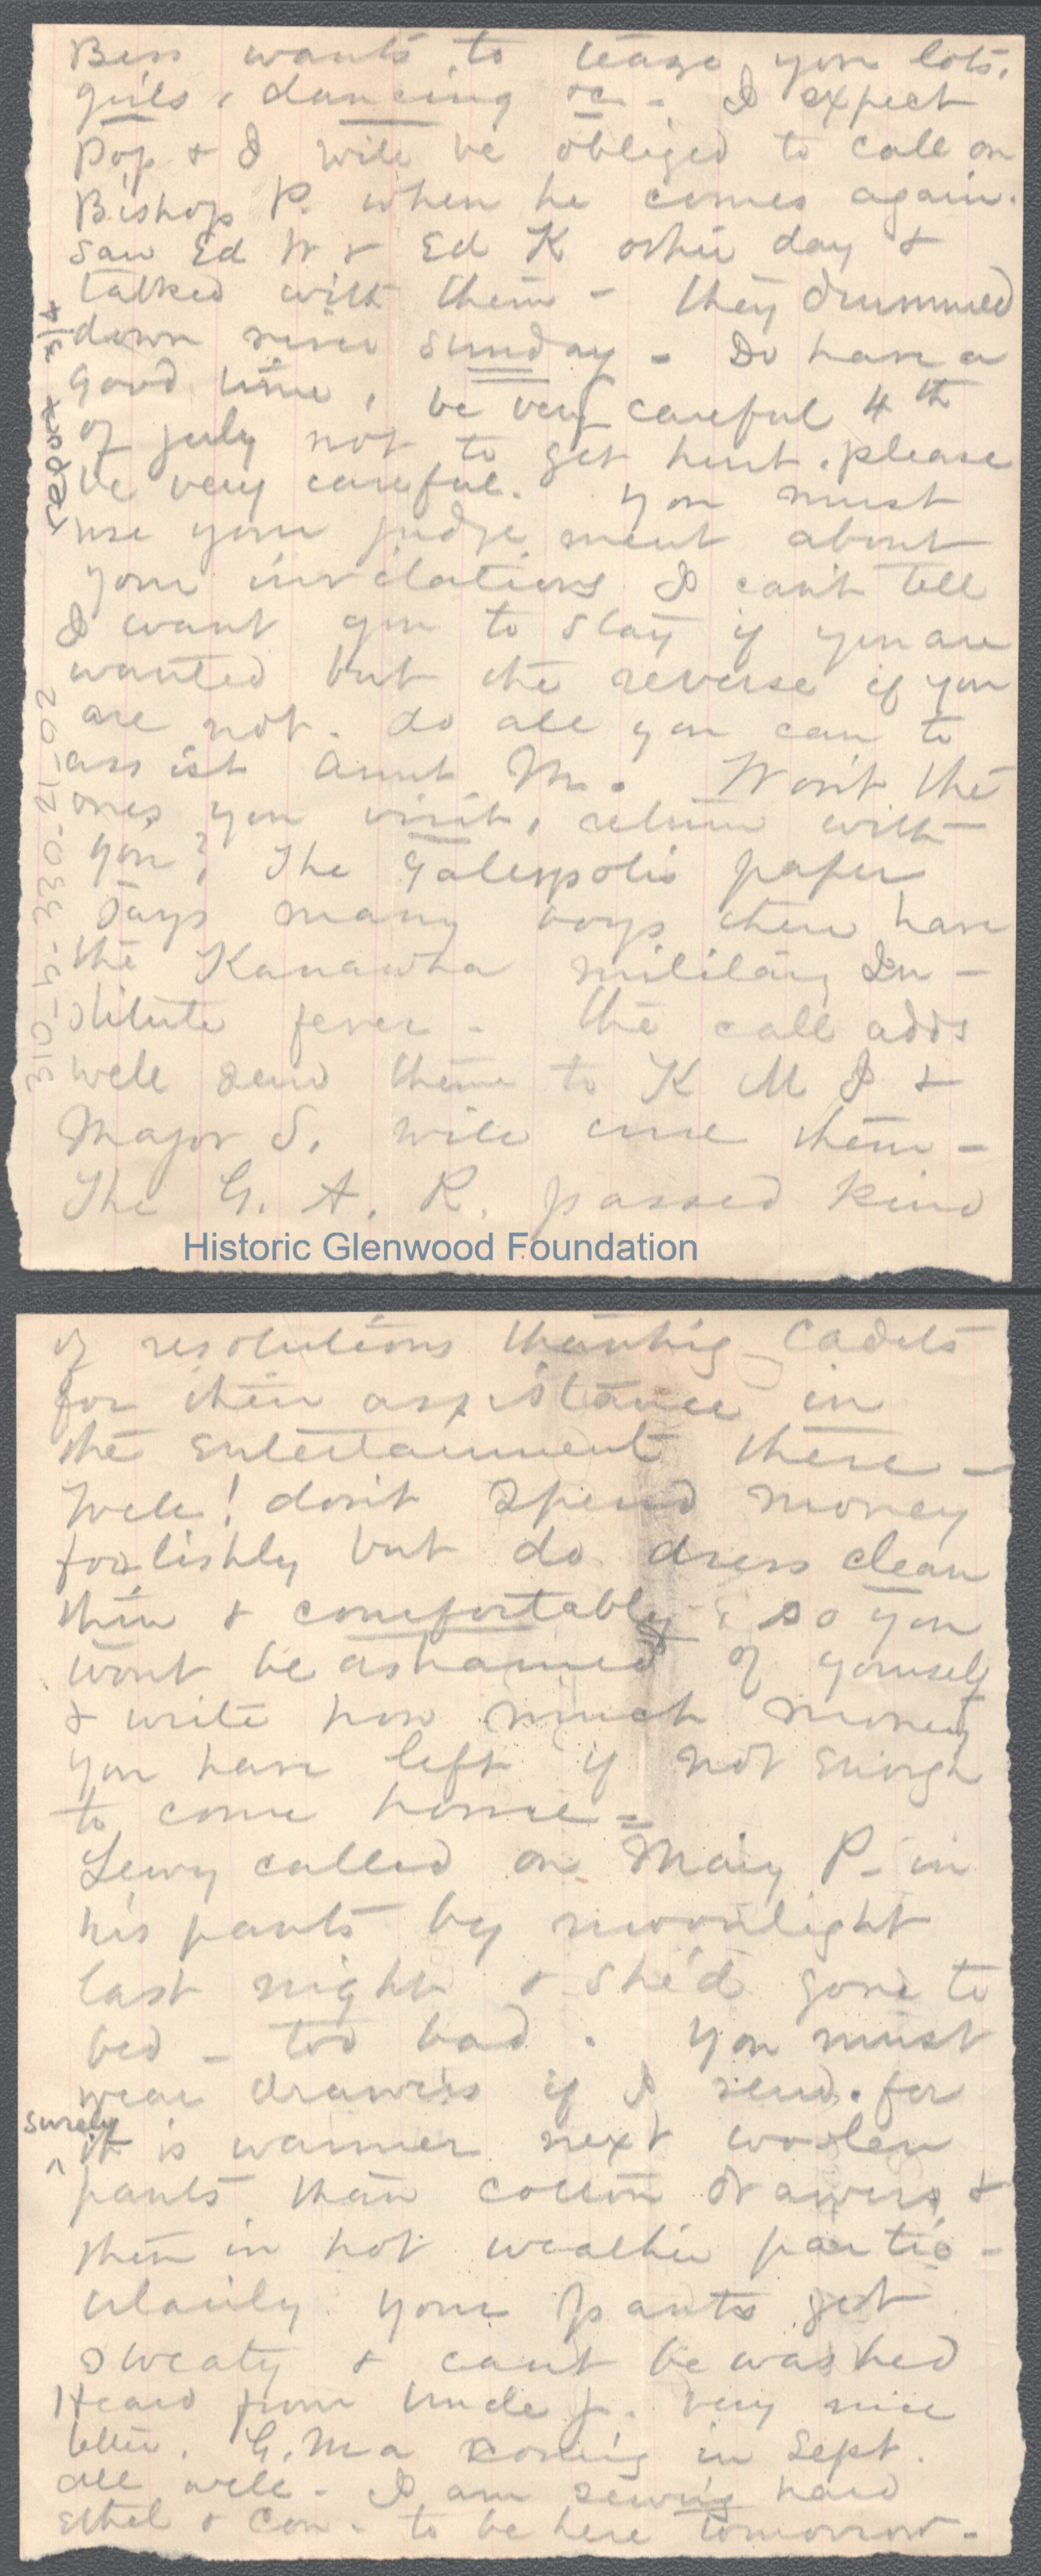 Bess wants to tease you lots,
girls, dancing &c - I expect
Pop & I will be obliged to call on
Bishop P. when he comes again.
saw Ed W & Ed K other day &
talked with them - they drummed
down river Sunday - Do have a
good time, be very careful 4th
of july not to get hurt. please
be very careful. You must
use your judge ment about
your invitations I can't tell
I want you to stay if you are
wanted but the reverse if you
are not. do all you can to
assist Aunt M. Won't the
ones you visit, return with
you? The Galiopolis paper
says many boys there have
the Kanawha military In-
stitute fever - the call adds
well send them to K M I &
Major S. will cure them -
The G. A. R. passed kind
report 3/4
310-4-330-21-02
Historic Glenwood Foundation
of resolutions thanking Cadets
for their assistance in
the entertainment there -
Well! don't spend money
foolishly but do dress clean
thin & comfortably so you
wont be ashamed of yourself
& write how much money
you have left if not enough
to come home =
Lewy called on Mary P- in
his pants by moonlight
last night & she'd gone to
bed - too bad. You must
wear drawers if I send. for
surely
^ it is warmer next woolen
pants than cotton drawers, &
then in hot weather partic-
ularily your pants get
sweaty & cant be washed
Heard from Uncle J. very nice
letter. G. Ma coming in Sept.
all well - I am sewing hard
Ethel & Con. to be here tomorrow -